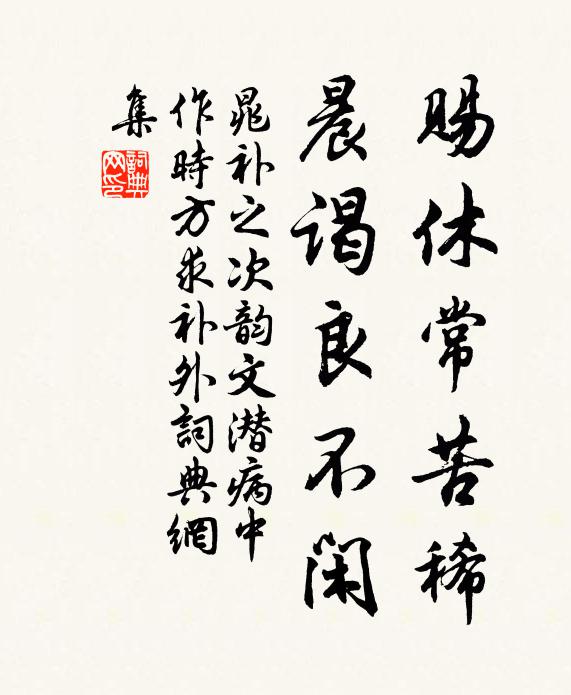 賜休常苦稀
晨謁良不閑
晁补之次韵文潜病中
作時方求补外詞典網
集
詞典网印